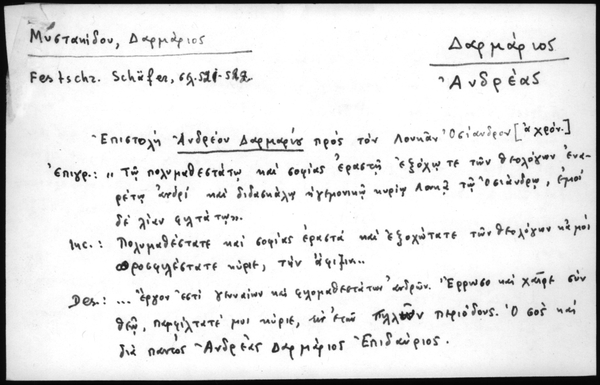 Μυστακίδου, Δαρμάριος
Δαρμάριος
Ἀνδρέας
Festschr. Schäfer, σελ. 521-522
Ἐπιστολὴ Ἀνδρέου Δαρμαρίου πρὸς τὸν Λουκᾶν Ὀσίανδρον [ἄχρον.]
Ἐπιγρ.: „Τῷ πολυμαθεστάτῳ καὶ σοφίας ἐραστῇ ἐξόχῳ τε τῶν θεολόγων ἐνα-
ρέτῳ ἀνδρί καὶ διδασκάλῳ ἡγεμονικῷ κυρίῳ Λουκᾷ τῷ Ὀσιάνδρῳ, ἐμοὶ
δὲ λίαν φιλτάτῳ».
Inc.: Πολυμαθέστατε καὶ σοφίας ἐραστὰ καὶ ἐξοχώτατε τῶν θεολόγων κἀμοὶ
προσφιλέστατε κύριε, τὴν ἄφιξιν..
Des.: ... ἔργον ἐστὶ γενναίων καὶ φιλομαθεστάτων ἀνδρῶν. Ἔρρωσο καὶ χαῖρε σὺν
θεῷ, περφίλτατέ μοι κύριε, ἐτῶν πλείστων περιόδους. Ὁ σὸς καὶ
διὰ παντὸς Ἀνδρέας Δαρμάριος Ἐπιδαύριος.